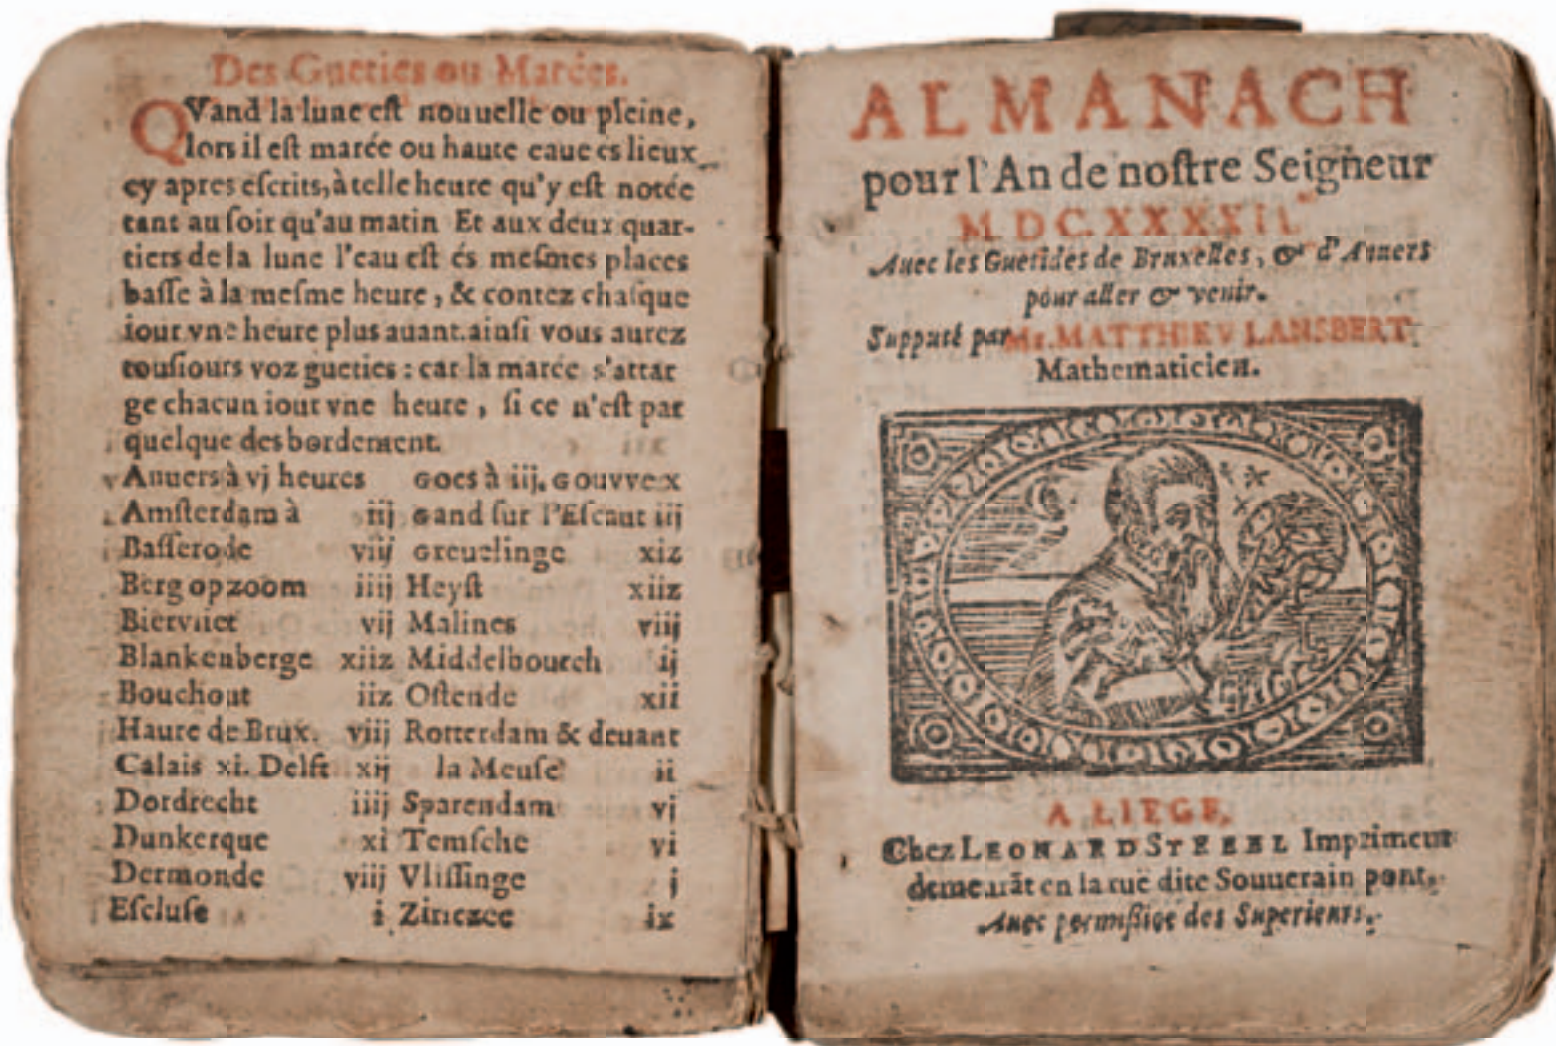 Des Gueties ou Marées.
QVand la lune eſt nouuelle ou pleine,
lors il eſt marée ou haute eaue es lieux
cy apres eſcrits, à telle heure qu'y eſt notée
tant au ſoir qu'au matin Et aux deux quar-
tiers de la lune l'eau eſt és meſmes places
baſſe à la meſme heure, & contez chaſque
iour vne heure plus auant. ainſi vous aurez
touſiours voz gueties : car la marée s'attar
ge chacun iour vne heure, ſi ce n'eſt par
quelque desbordement.
Anuers à vj heures
Amſterdam à iij
Baſſerode viij
Berg opzoom iiij
Biervliet vij
Blankenberge xiiz
Bouchout iiz
Haure de Brux. viij
Calais xi. Delft xij
Dordrecht iiij
Dunkerque xi
Dermonde viij
Eſcluſe i
Goes à iij. Gouvve x
Gand ſur l'Eſcaut iij
Greuelinge xiz
Heyſt xiiz
Malines viij
Middelbourch ij
Oſtende xii
Rotterdam & deuant
la Meuſe ii
Sparendam vj
Temſche vi
Vliſſinge j
Ziriczee ix
ALMANACH
pour l'An de noſtre Seigneur
M DC.XXXXII.
Auec les Guetides de Bruxelles, & d'Anuers
pour aller & venir.
Supputé par Mr. MATTHIEV LANSBERT
Mathematicien.
A LIEGE,
Chez LEONARD STREEL Imprimeur
demeurāt en la ruë dite Souuerain pont,
Auec permiſſion des Superieurs.